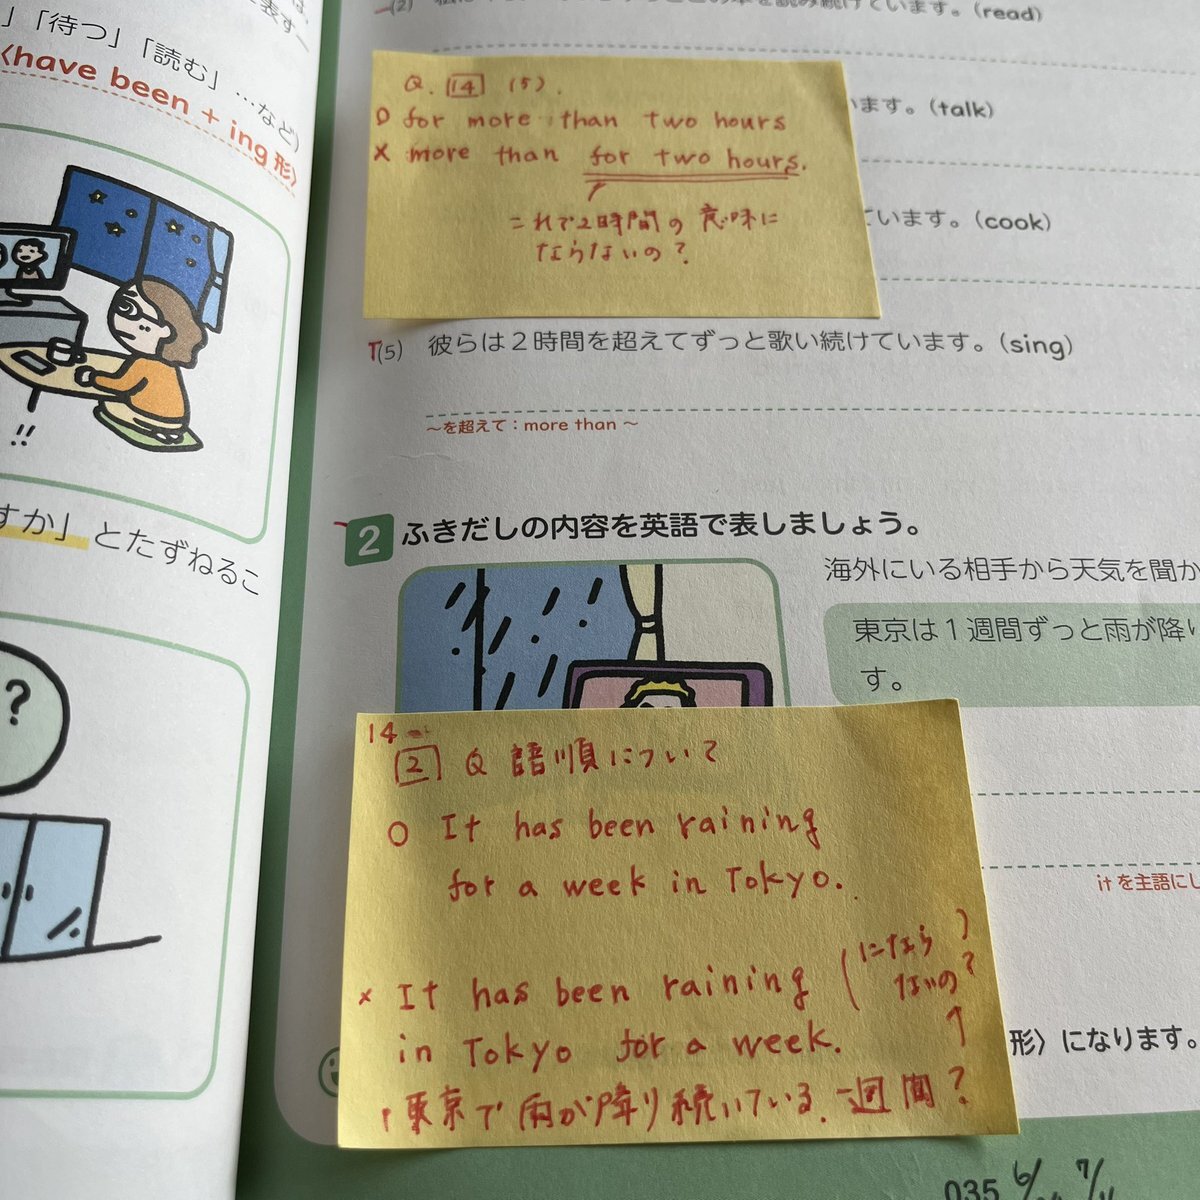 」「待つ」「読む」…など)
〈have been + ing形〉
!!
すか」とたずねるこ
?
(2)
を読み続けています。(read)
います。(talk)
ています。(cook)
Q. 14 (5).
O for more than two hours
× more than for two hours.
これで2時間の意味に
ならないの?
T(5) 彼らは2時間を超えてずっと歌い続けています。(sing)
〜を超えて：more than 〜
2 ふきだしの内容を英語で表しましょう。
海外にいる相手から天気を聞か
東京は1週間ずっと雨が降り
す。
14
2 Q 語順について
O It has been raining
for a week in Tokyo.
× It has been raining (にならないの?)
in Tokyo for a week. ↑
東京で雨が降り続いている、一週間?
itを主語にし
形〉になります。
035